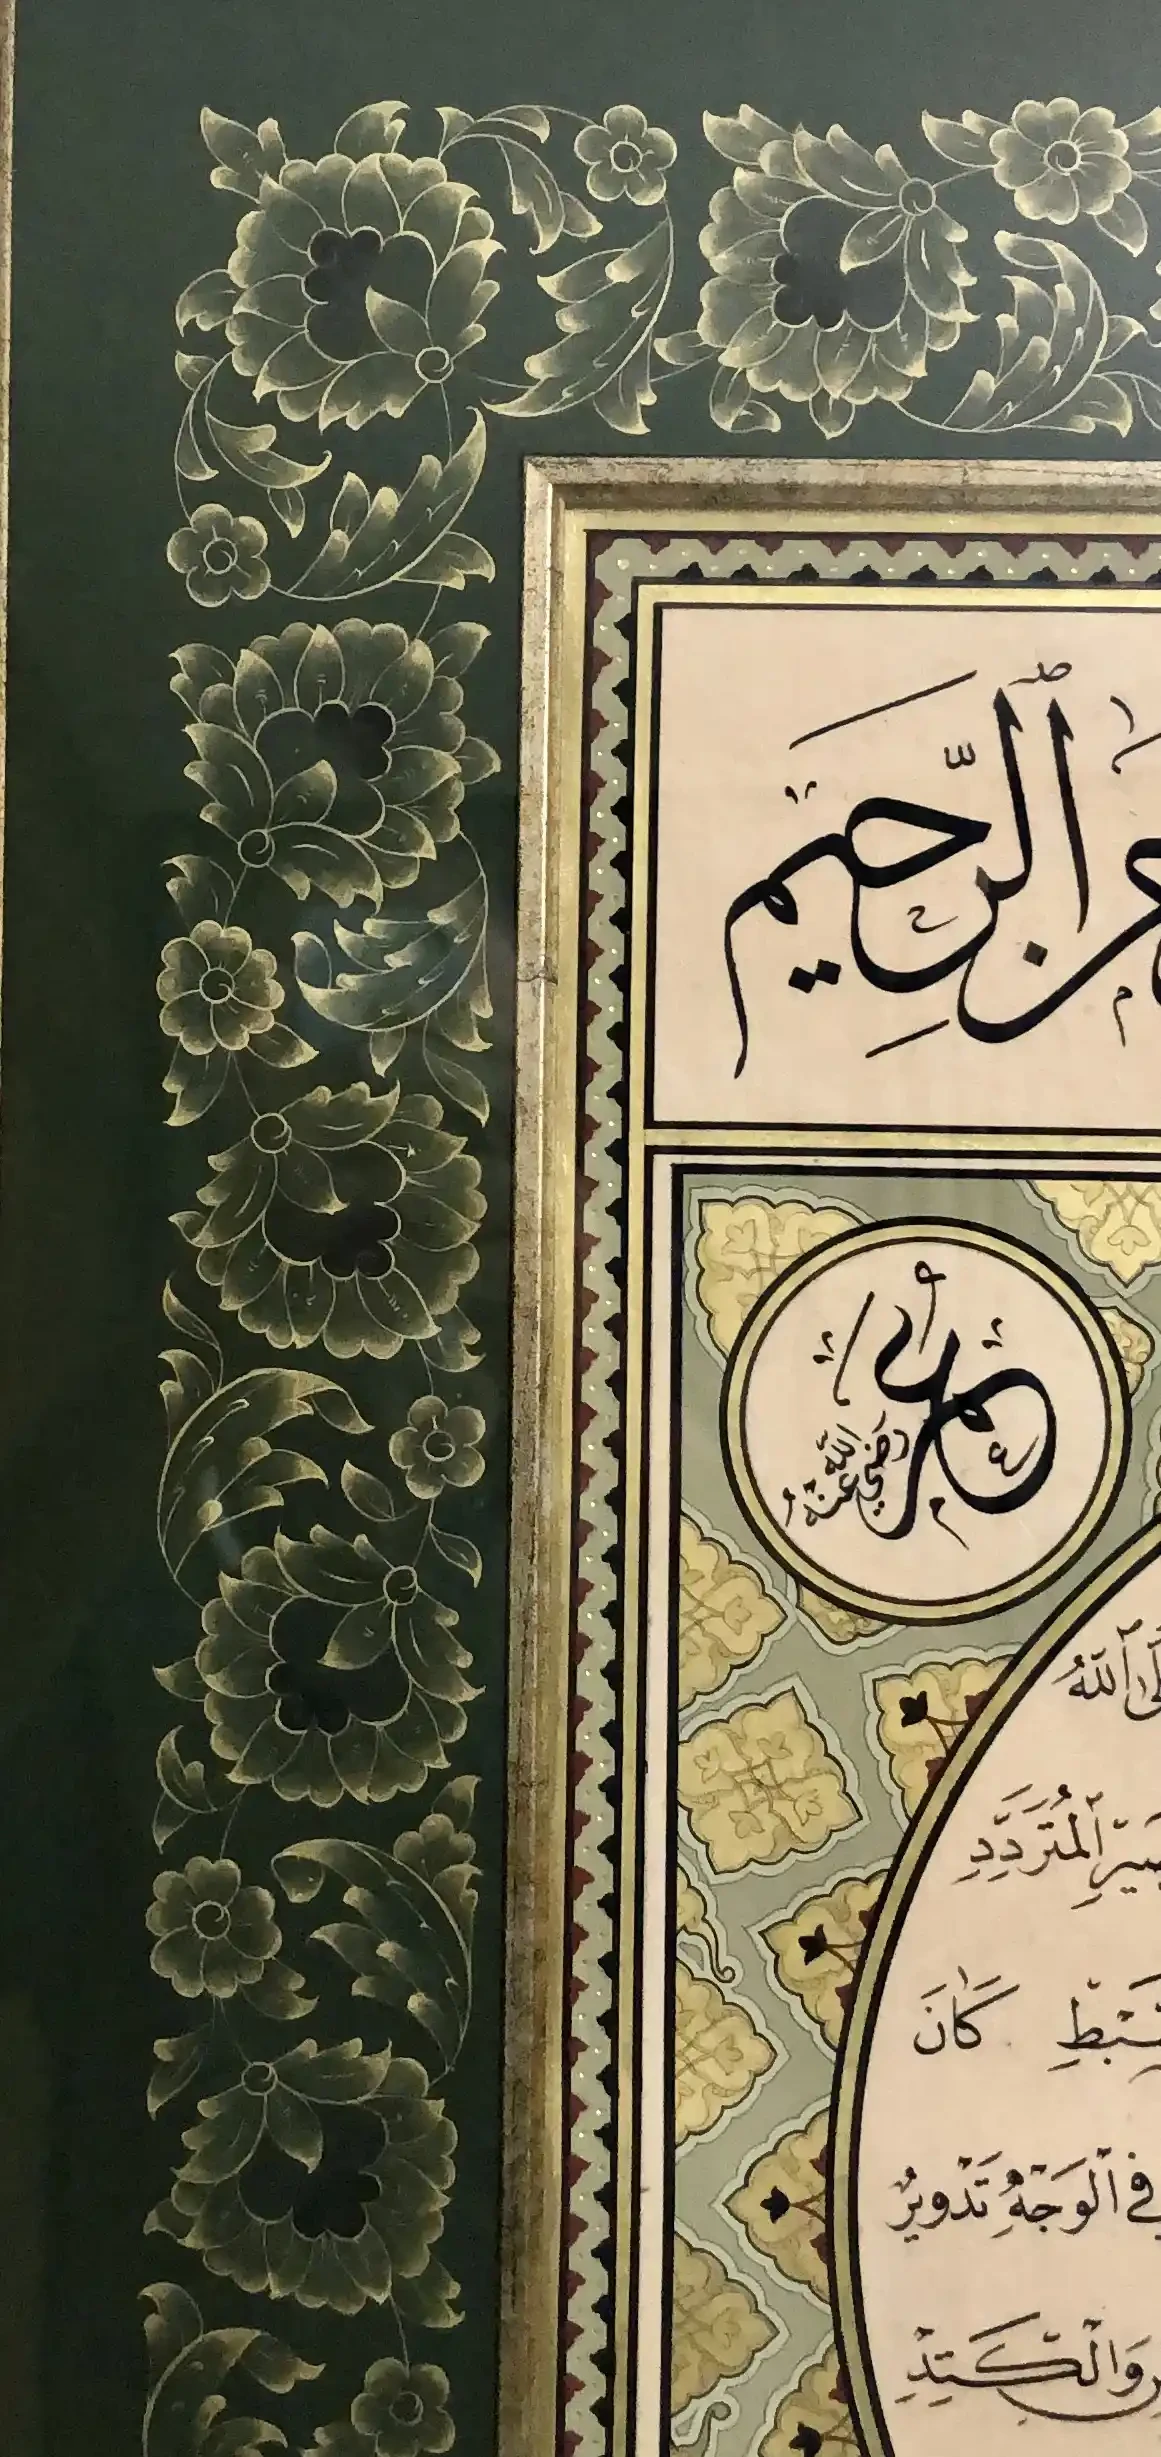 ٱلرَّحِيمِ
عمر رَضِيَ اللّٰهُ عَنْهُ
ٱللّٰهُ
ٱلْمُتَرَدِّدِ
كَانَ
فِي ٱلْوَجْهِ تَدْوِيرٌ
وَٱلْكَتِدِ